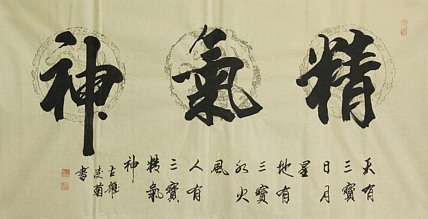 精氣神
天有
三寶
日月
星
地有
三寶
水火
風
人有
三寶
精氣
神
書